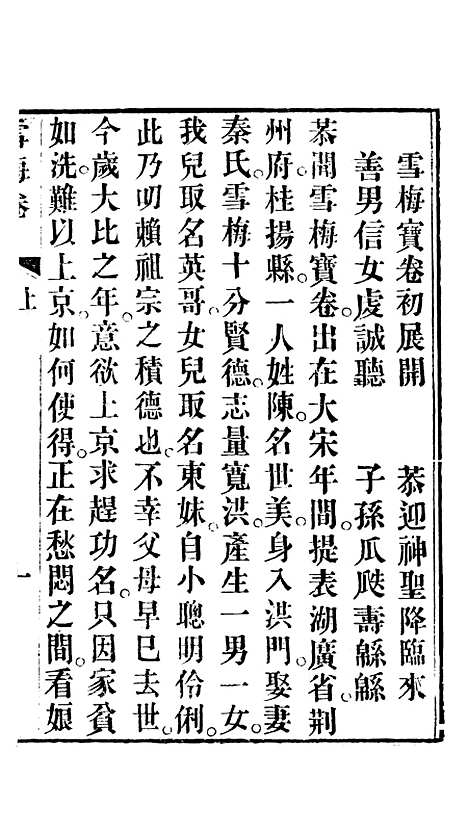 雪梅寶卷初展開　恭迎神聖降臨來
善男信女虔誠聽　子孫瓜瓞壽緜緜
恭聞雪梅寶卷。出在大宋年間。提表湖廣省荆
州府桂揚縣。一人姓陳。名世美。身入洪門。娶妻
秦氏。雪梅十分賢德。志量寬洪。產生一男一女。
我兒取名英哥。女兒取名東妹。自小聰明伶俐。
此乃叨賴祖宗之積德也。不幸父母早已去世。
今歲大比之年。意欲上京求趕功名。只因家貧
如洗。難以上京。如何使得。正在愁悶之間。看娘
雪梅卷　上　一